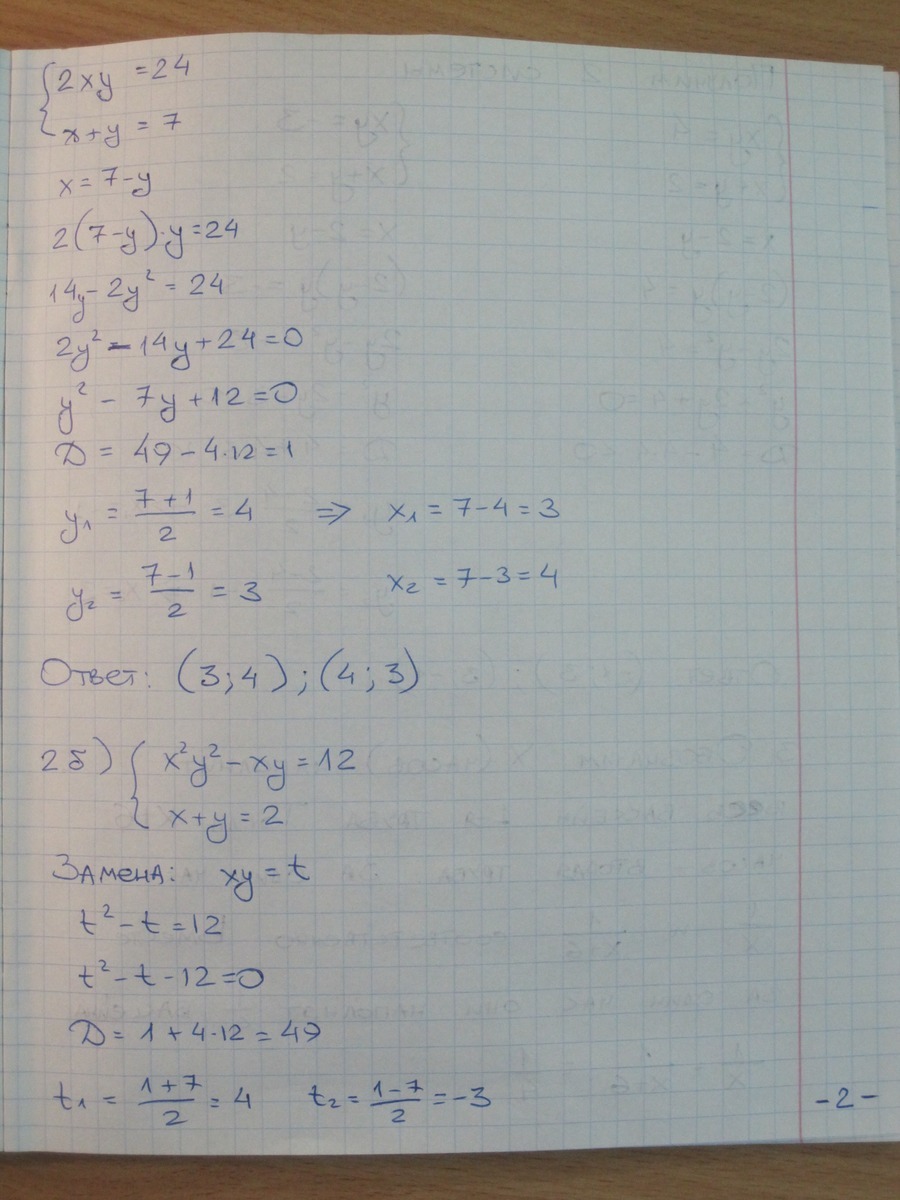 {2xy = 24
x+y = 7
x = 7-y
2(7-y)·y=24
14y - 2y² = 24
2y² - 14y + 24 = 0
y² - 7y + 12 = 0
D = 49 - 4·12 = 1
y₁ = (7+1)/2 = 4 ⇒ x₁ = 7-4 = 3
y₂ = (7-1)/2 = 3 x₂ = 7-3 = 4
Ответ: (3;4); (4;3)
2б) {x²y² - xy = 12
x+y = 2
Замена: xy = t
t² - t = 12
t² - t - 12 = 0
D = 1 + 4·12 = 49
t₁ = (1+7)/2 = 4 t₂ = (1-7)/2 = -3
-2-